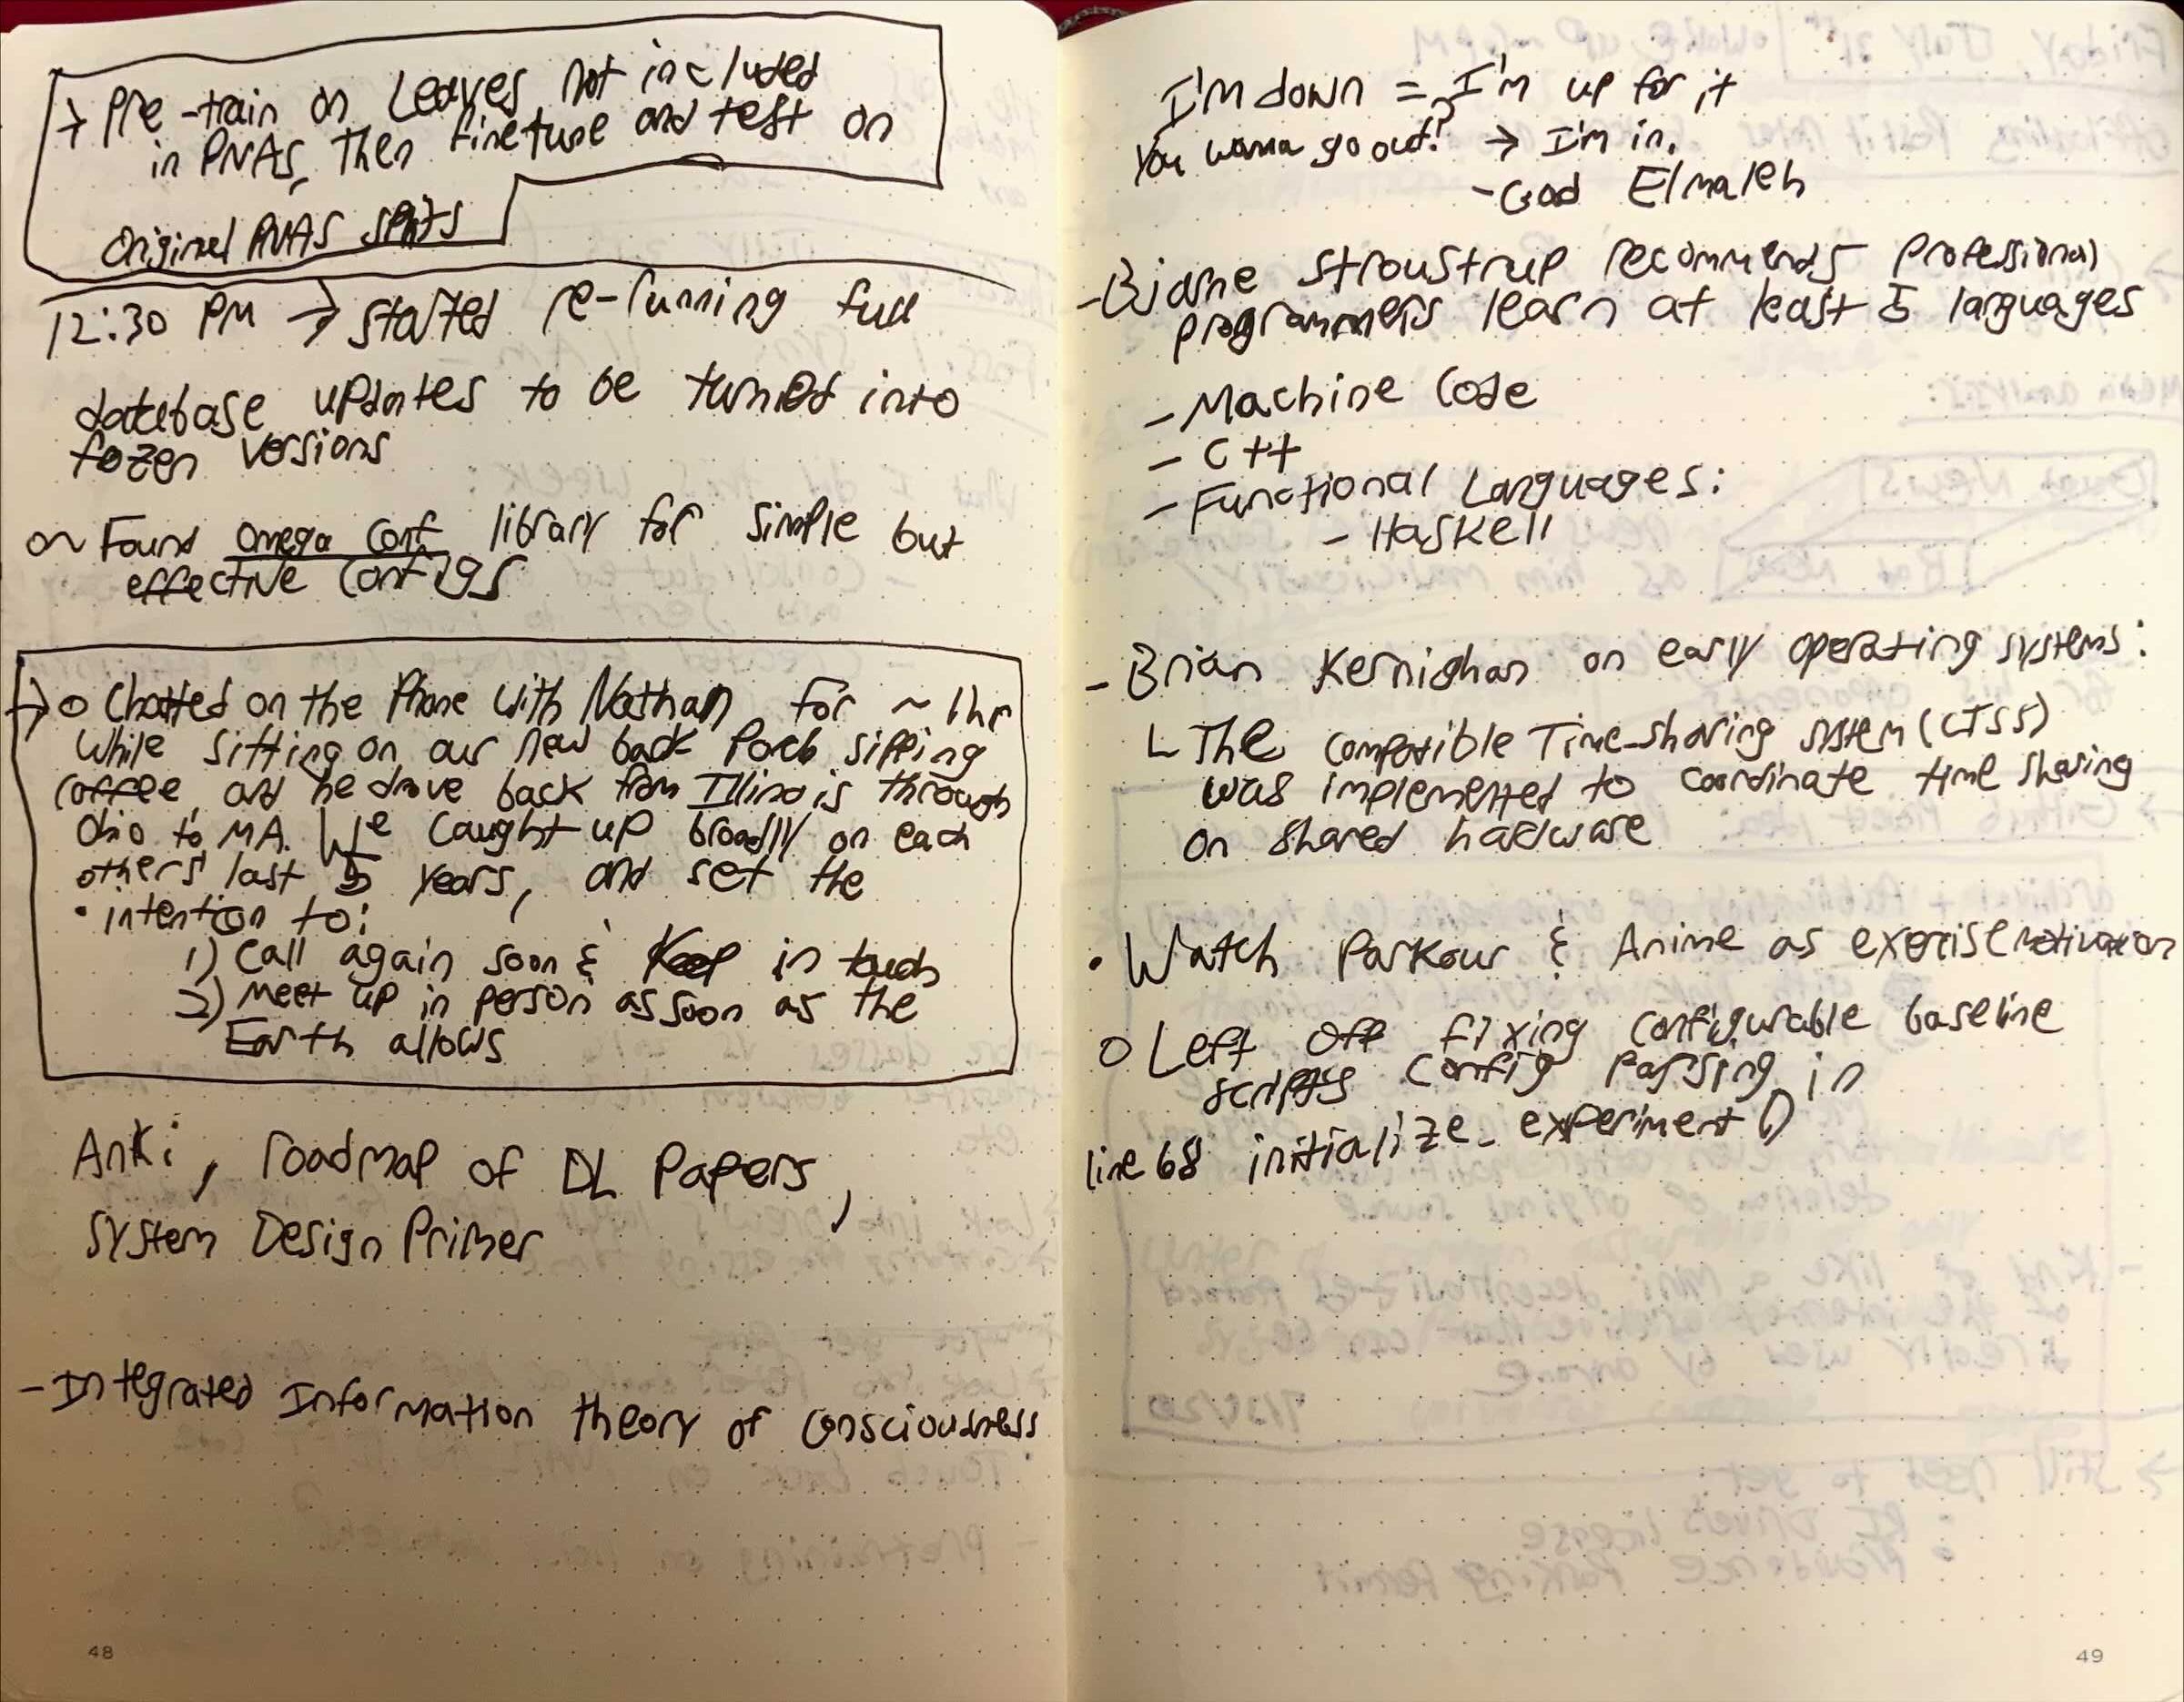 → Pre-train on Leaves not included
in PNAS, then finetune and test on
original PNAS splits
12:30 PM → started re-running full
database updates to be turned into
fozen versions
Found Omega Conf library for simple but
effective configs
→ o Chatted on the Phone with Nathan for ~ 1hr
while sitting on our new back Porch sipping
coffee, and he drove back from Illinois through
Ohio to MA. We caught up broadly on each
others' last 5 years, and set the
• intention to:
1) Call again soon & Keep in touch
2) Meet up in person as soon as the
Earth allows
Anki, roadmap of DL Papers,
System Design Primer
- Integrated Information theory of consciousness
48
I'm down = I'm up for it
You wanna go out? → I'm in.
- Gad Elmaleh
- Bjarne Stroustrup recommends professional
programmers learn at least 5 languages
- Machine Code
- C++
- Functional Languages:
- Haskell
- Brian Kernighan on early operating systems:
The Compatible Time-sharing system (CTSS)
was implemented to coordinate time sharing
on shared hardware
• Watch Parkour & Anime as exercise motivation
o Left off fixing configurable baseline
scripts config parsing in
line 68 initialize_experiment()
49